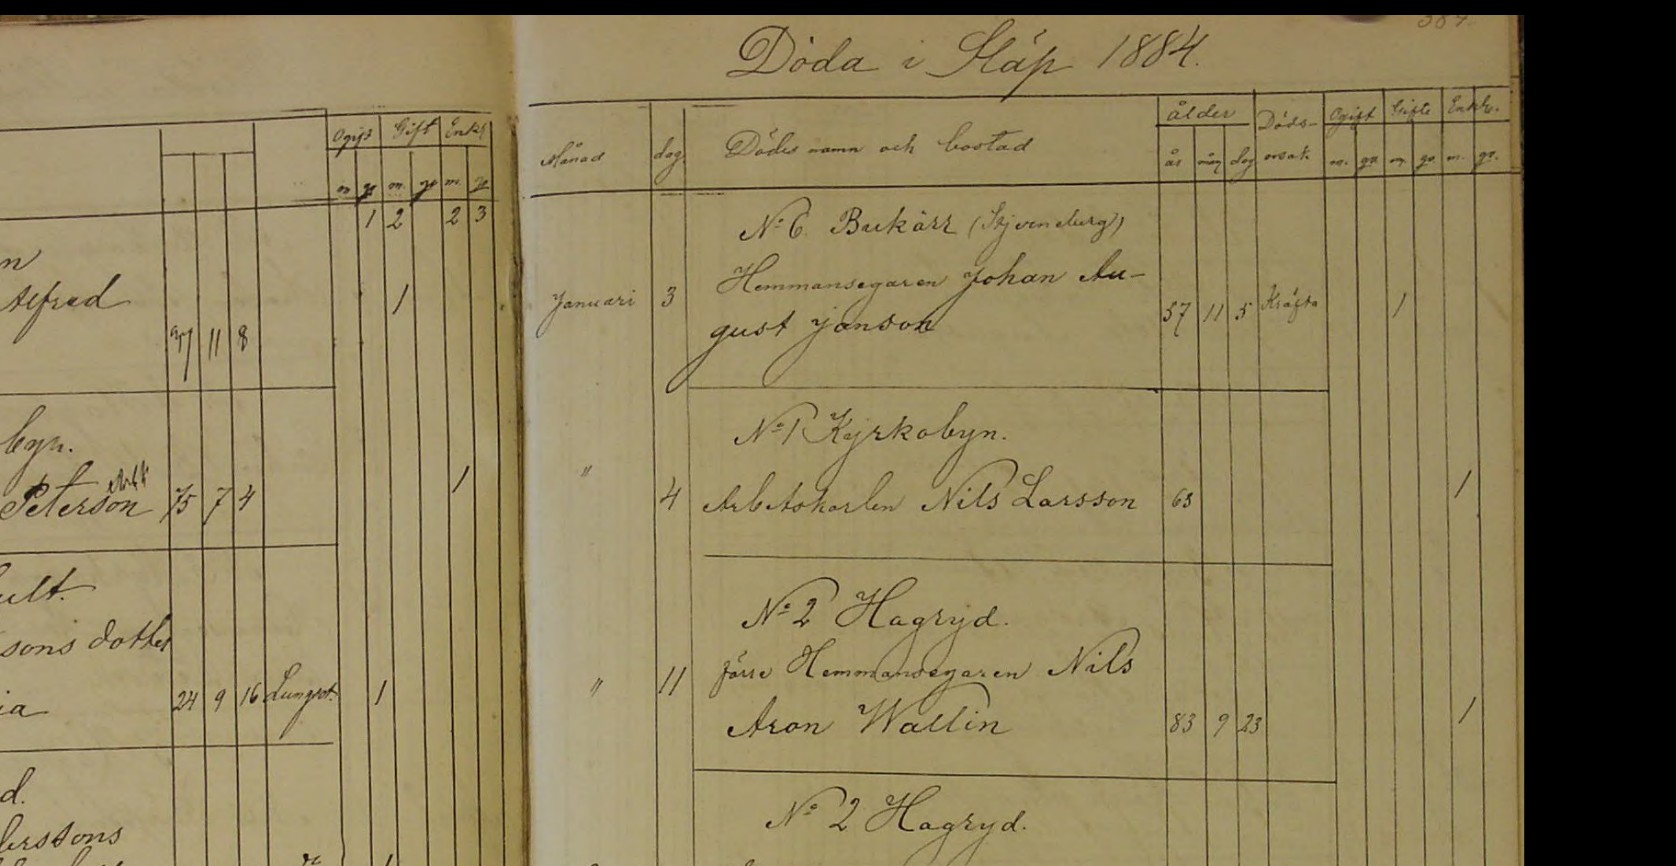 Ogift Gift Enkl
m. qv. m. qv. m. qv.
1 2 2 3
n
Alfred 1
11 8
byn.
Peterson 75 7 4 1
ult.
sons dotter
ia 24 9 16 Lungsot. 1
d.
erssons
Döda i Släp 1884.
Månad dag. Dödes namn och bostad ålder Döds- Ogift Gifte Enkl.
år mån dag orsak m. qv. m. qv. m. qv.
No 6. Bukärr
Hemmansegaren Johan Au-
Januari 3 57 11 5 Kräfta 1
gust Janson
No 1 Kyrkobyn.
" 4 Arbetskarlen Nils Larsson 1
No 2 Hagryd.
" 11 förre Hemmansegaren Nils
Aron Wallin 83 9 23 1
No 2 Hagryd.